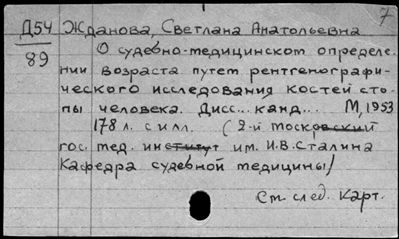 7
Д54 Жданова, Светлана Анатольевна
89 О судебно-медицинском определе-
нии возраста путем рентгенографи-
ческого исследования костей сто-
пы человека. Дисс... канд... М, 1953
178 л. с илл. (2-й московский
гос. мед. институт им. И.В. Сталина
Кафедра судебной медицины)
См. след. карт.